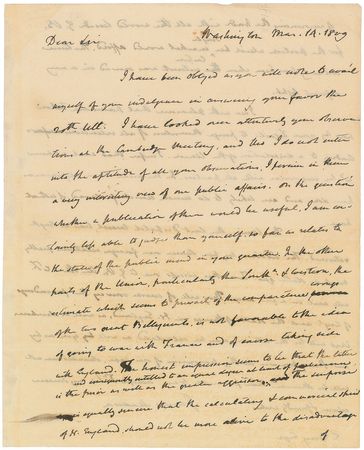 Dear Sir
Washington Mar. 1809
I have been obliged as you will note to avail
myself of your indulgence in answering your favor the
20th Ult. I have looked over attentively your observa
tions at the Cambridge Meeting, and tho' I do not enter
into the aptitude of all your observations, I perceive in them
a very interesting view of our public affairs. On the question
whether a publication of them would be useful, I am cer
tainly less able to judge than yourself, so far as relates to
the state of the public mind in your quarter. In the other
parts of the Union, particularly the South & western, the
estimate which seems to prevail of the comparative wrongs
of the two great Belligerents, is not favourable to the idea
of going to war with France and of course taking side
with England. The honest impression seems to be that the latter
and iniquitously entitled to an equal degree at least of
is the prior as well as the greater aggressor, and the surprise
is equally sincere that the calculating & commercial spirit
of N. England, should not be more alive to the disadvantage
of